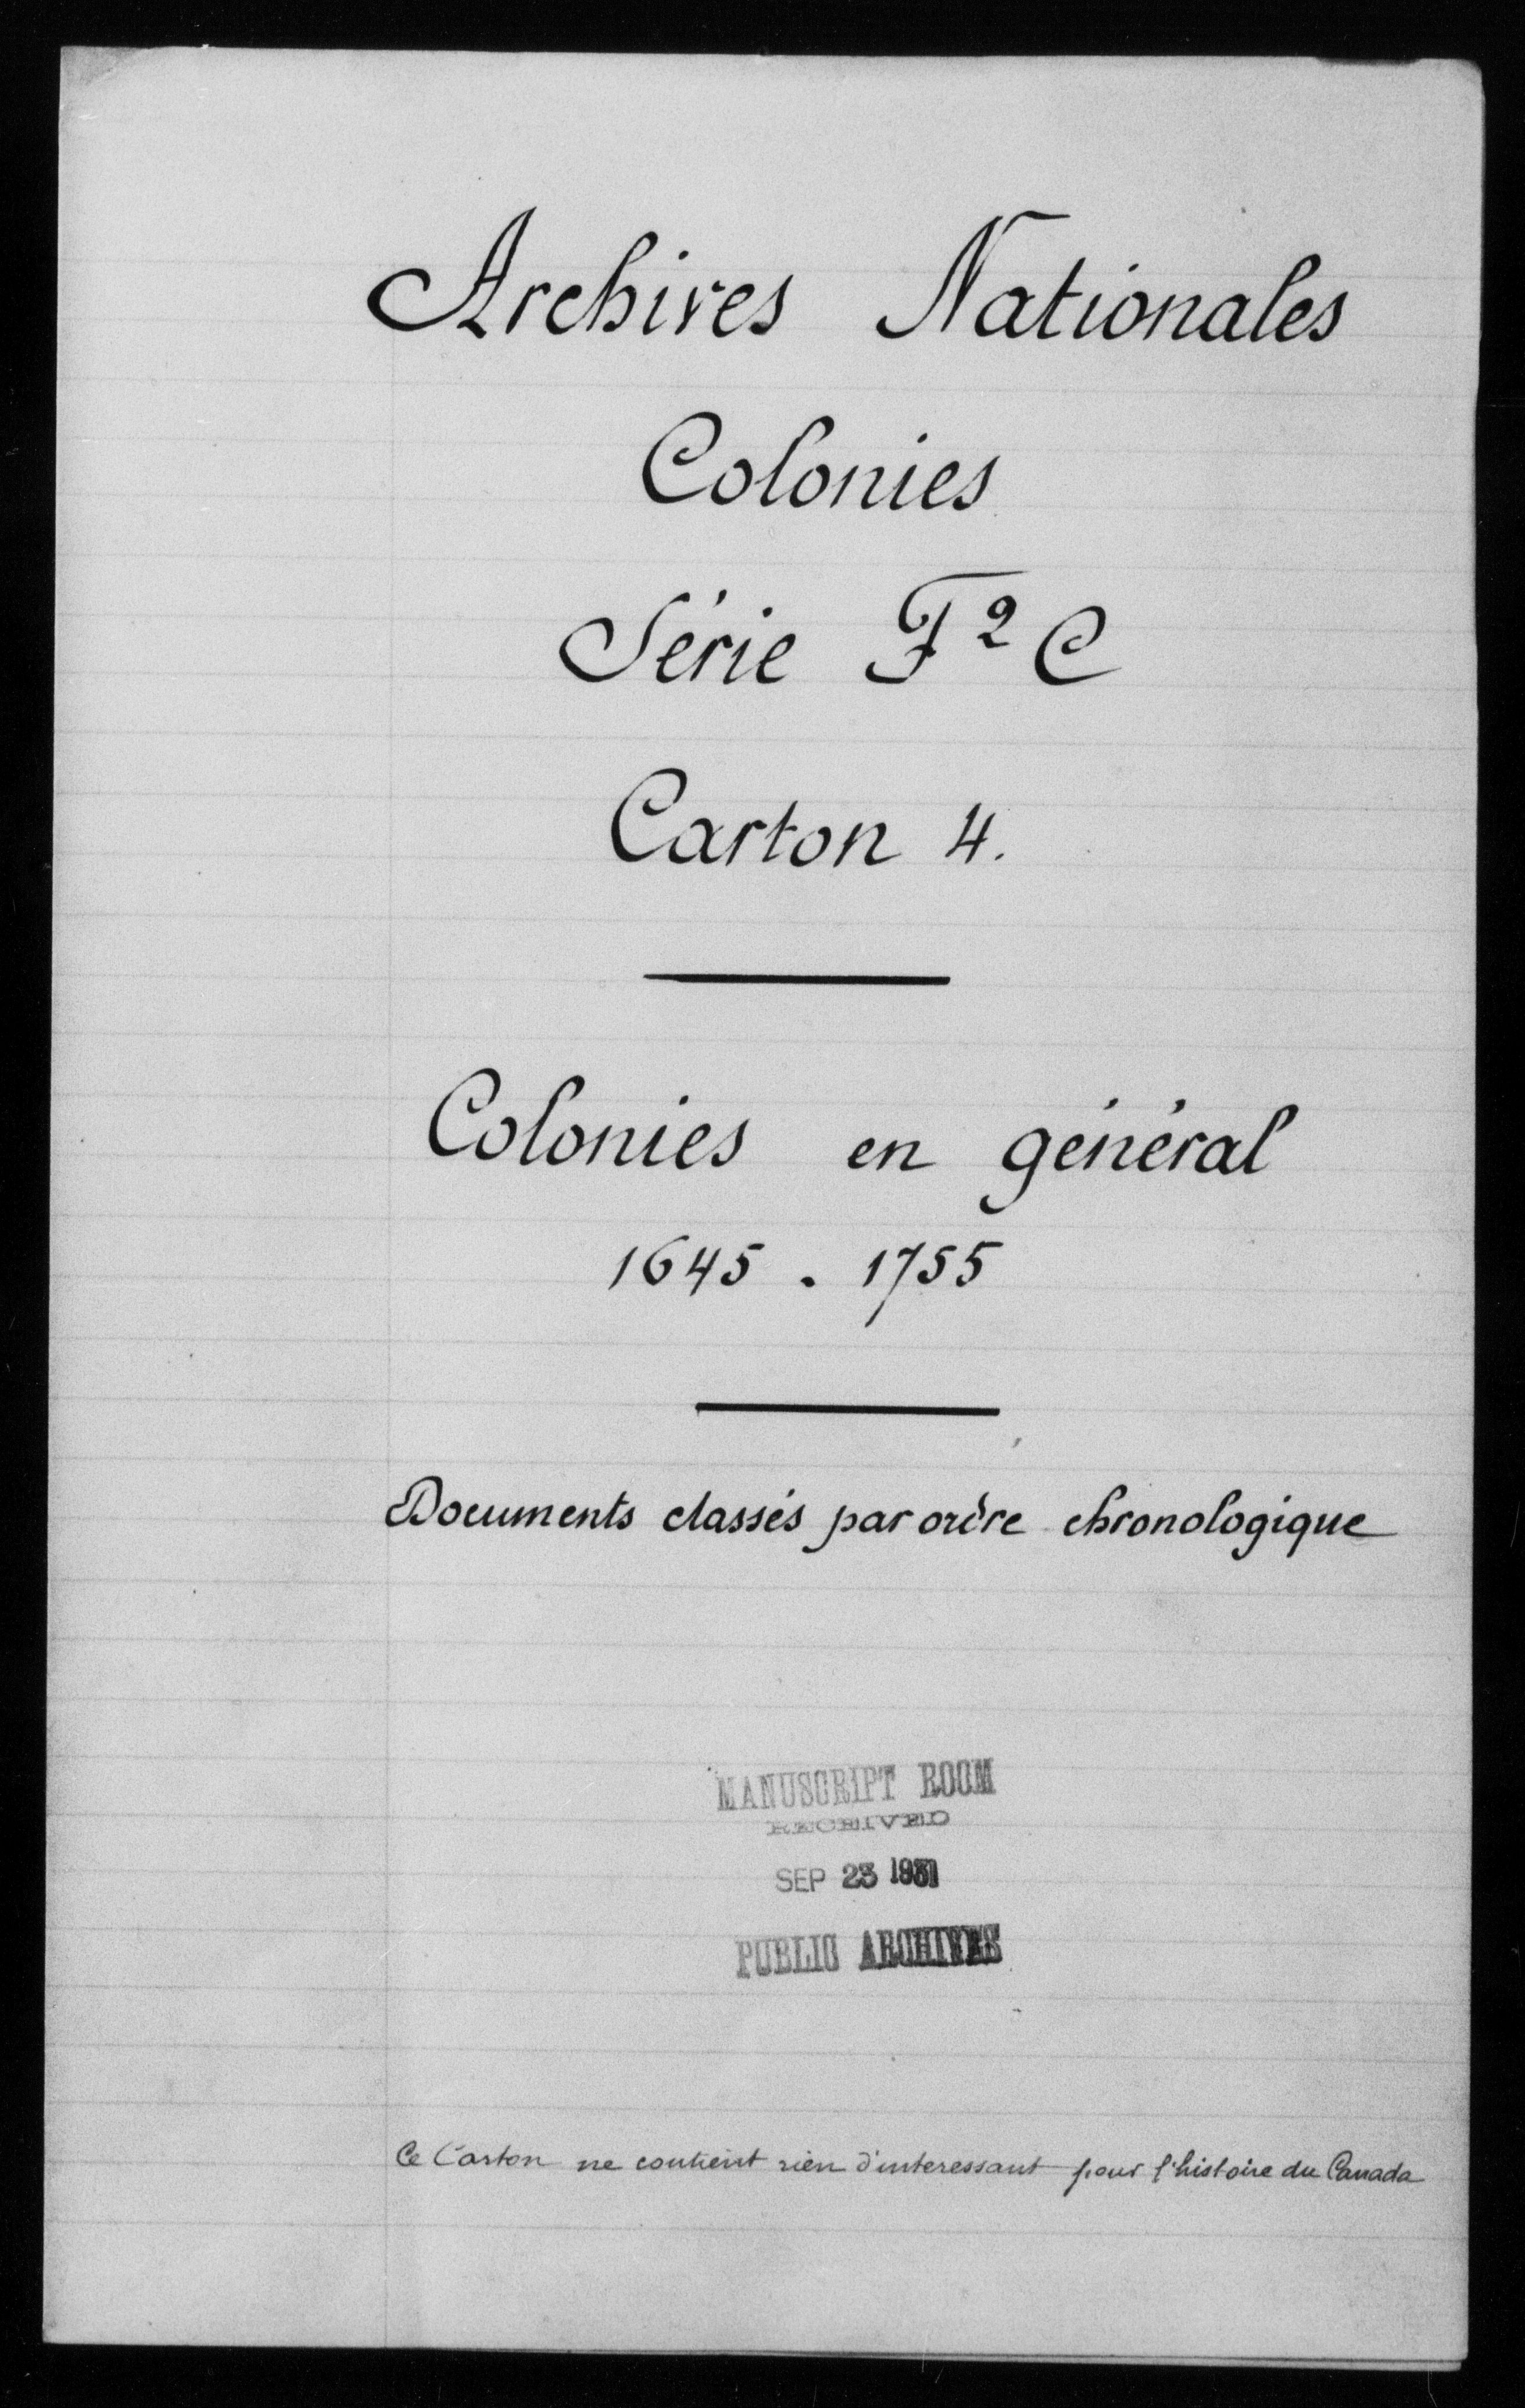 Archives Nationales
Colonies
Série F² C
Carton 4.
Colonies en général
1645 . 1755
Documents classés par ordre chronologique
MANUSCRIPT ROOM
RECEIVED
SEP 23
PUBLIC ARCHIVES
Ce Carton ne contient rien d'interessant pour l'histoire du Canada